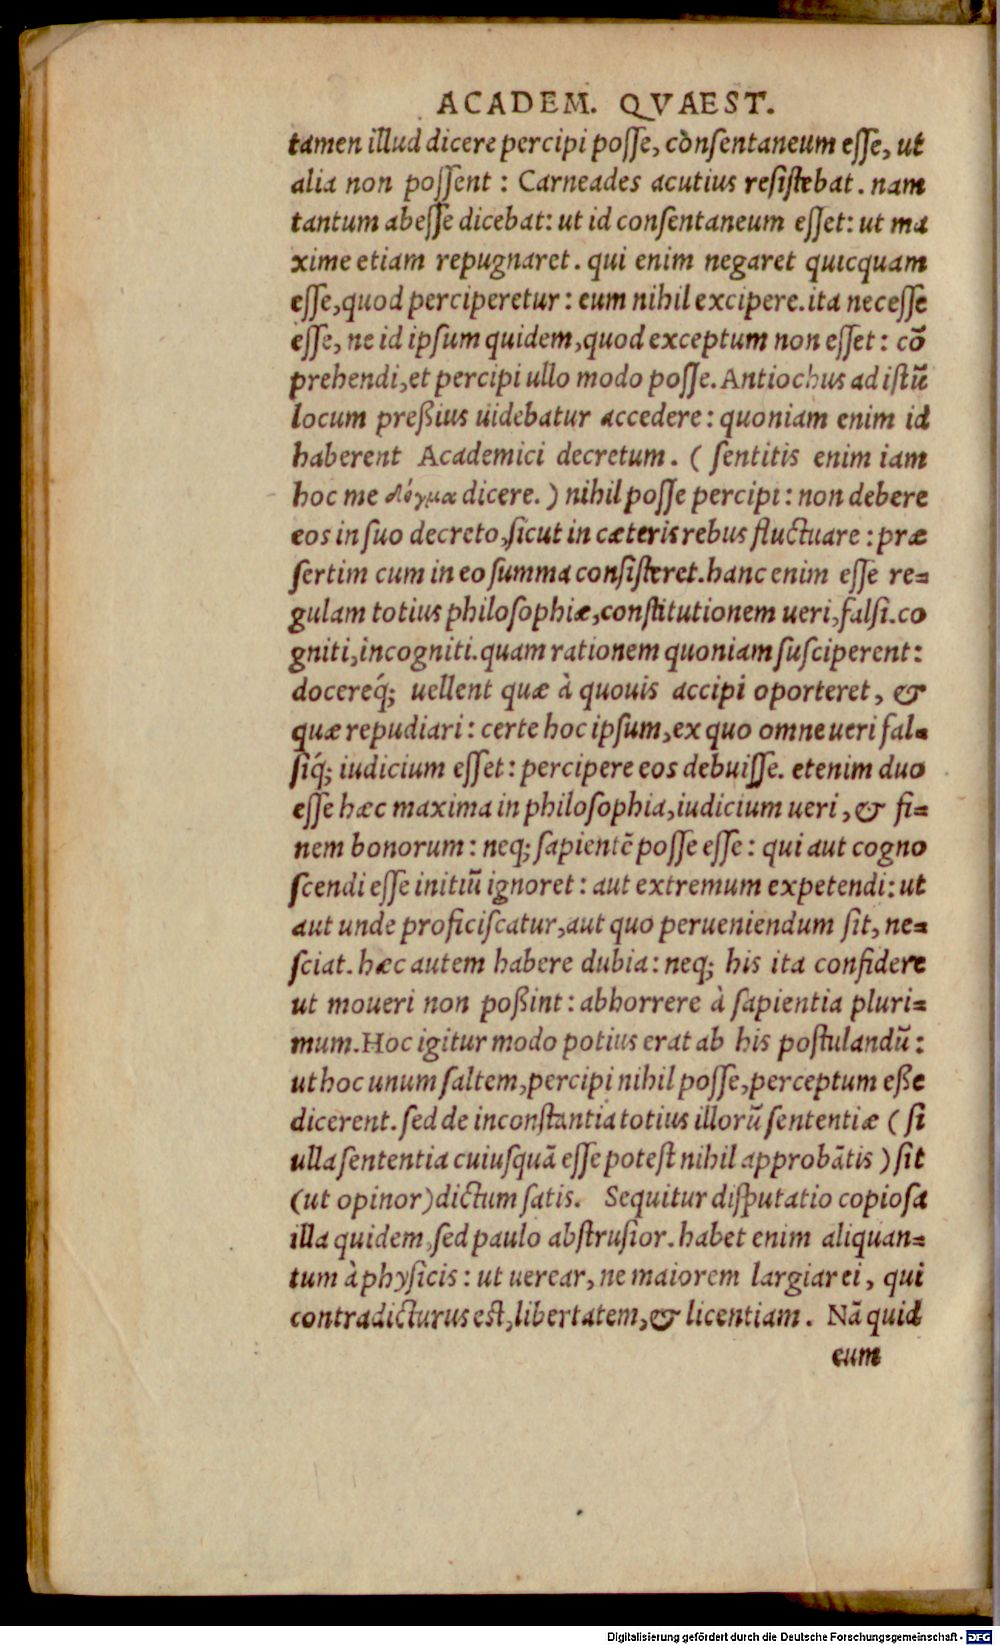 ACADEM. QVAEST.
tamen illud dicere percipi posse, cònsentaneum esse, ut
alia non possent : Carneades acutius resistebat . nam
tantum abesse dicebat: ut id consentaneum esset: ut ma
xime etiam repugnaret . qui enim negaret quicquam
esse, quod perciperetur : eum nihil excipere. ita necesse
esse, ne id ipsum quidem, quod exceptum non esset : cō
prehendi, et percipi ullo modo posse. Antiochus ad istū
locum preßius uidebatur accedere : quoniam enim id
haberent Academici decretum . ( sentitis enim iam
hoc me δόγμα dicere. ) nihil posse percipi : non debere
eos in suo decreto, sicut in cæteris rebus fluctuare : præ
sertim cum in eo summa consisteret. hanc enim esse re=
gulam totius philosophiæ, constitutionem ueri, falsi. co
gniti, incogniti. quam rationem quoniam susciperent :
docereq́; uellent quæ à quouis accipi oporteret, &
quæ repudiari : certe hoc ipsum, ex quo omne ueri fal=
siq́; iudicium esset : percipere eos debuisse. etenim duo
esse hæc maxima in philosophia, iudicium ueri, & fi=
nem bonorum : neq; sapientē posse esse : qui aut cogno
scendi esse initiū ignoret : aut extremum expetendi : ut
aut unde proficiscatur, aut quo perueniendum sit, ne=
sciat. hæc autem habere dubia : neq; his ita confidere
ut moueri non poßint : abhorrere à sapientia pluri=
mum. Hoc igitur modo potius erat ab his postulandū :
ut hoc unum saltem, percipi nihil posse, perceptum eße
dicerent. sed de inconstantia totius illorū sententiæ ( si
ulla sententia cuiusquā esse potest nihil approbātis ) sit
(ut opinor) dictum satis. Sequitur disputatio copiosa
illa quidem, sed paulo abstrusior. habet enim aliquan=
tum à physicis : ut uerear, ne maiorem largiar ei, qui
contradicturus est, libertatem, & licentiam . Nā quid
eum
Digitalisierung gefördert durch die Deutsche Forschungsgemeinschaft - DFG